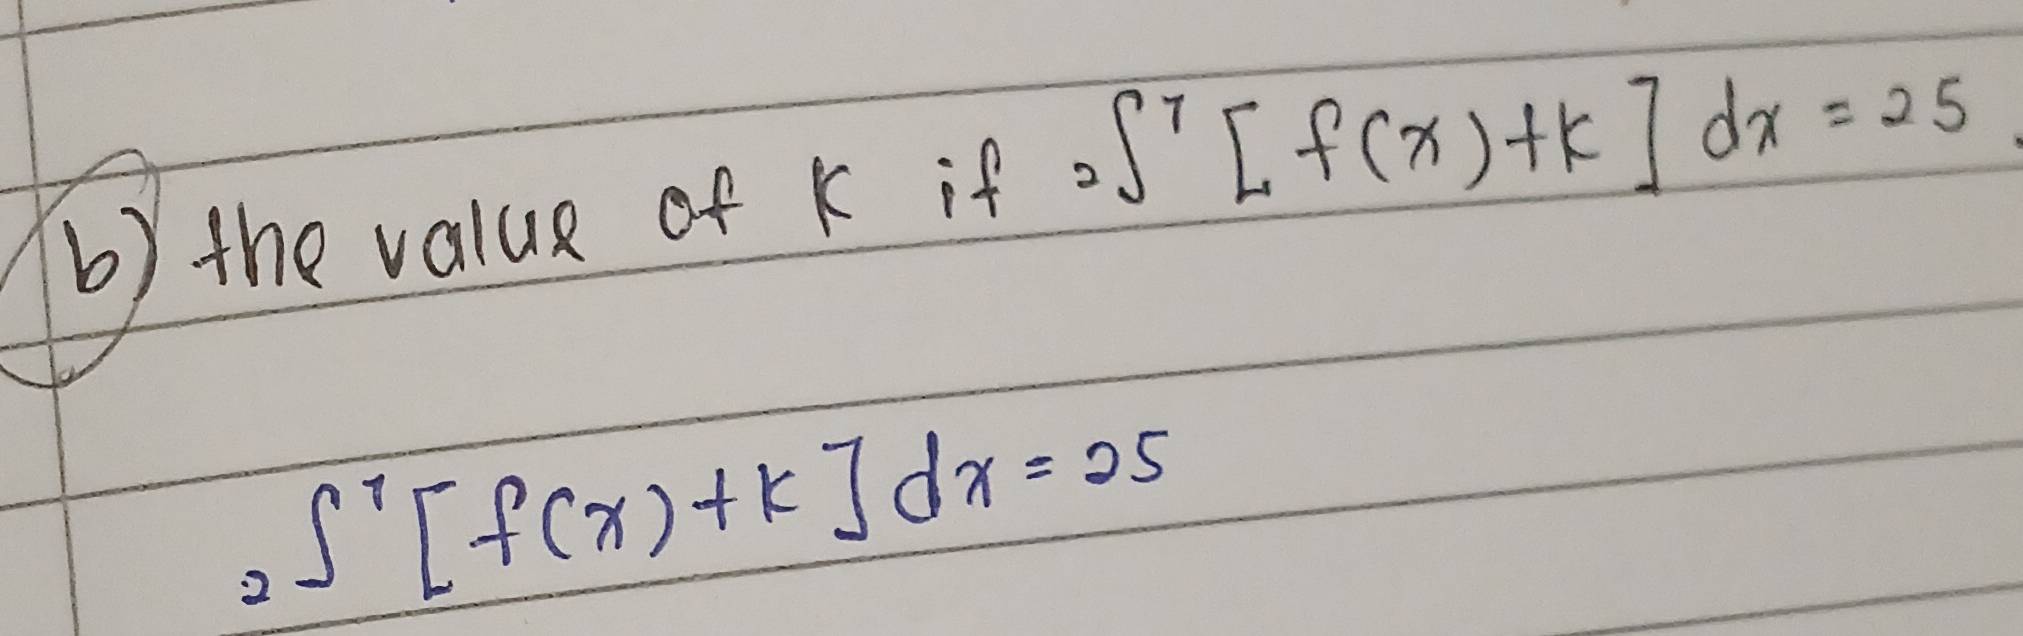 b) the value of k if ₂∫⁷ [f(x)+k] dx = 25.
₂∫⁷ [f(x)+k] dx = 25